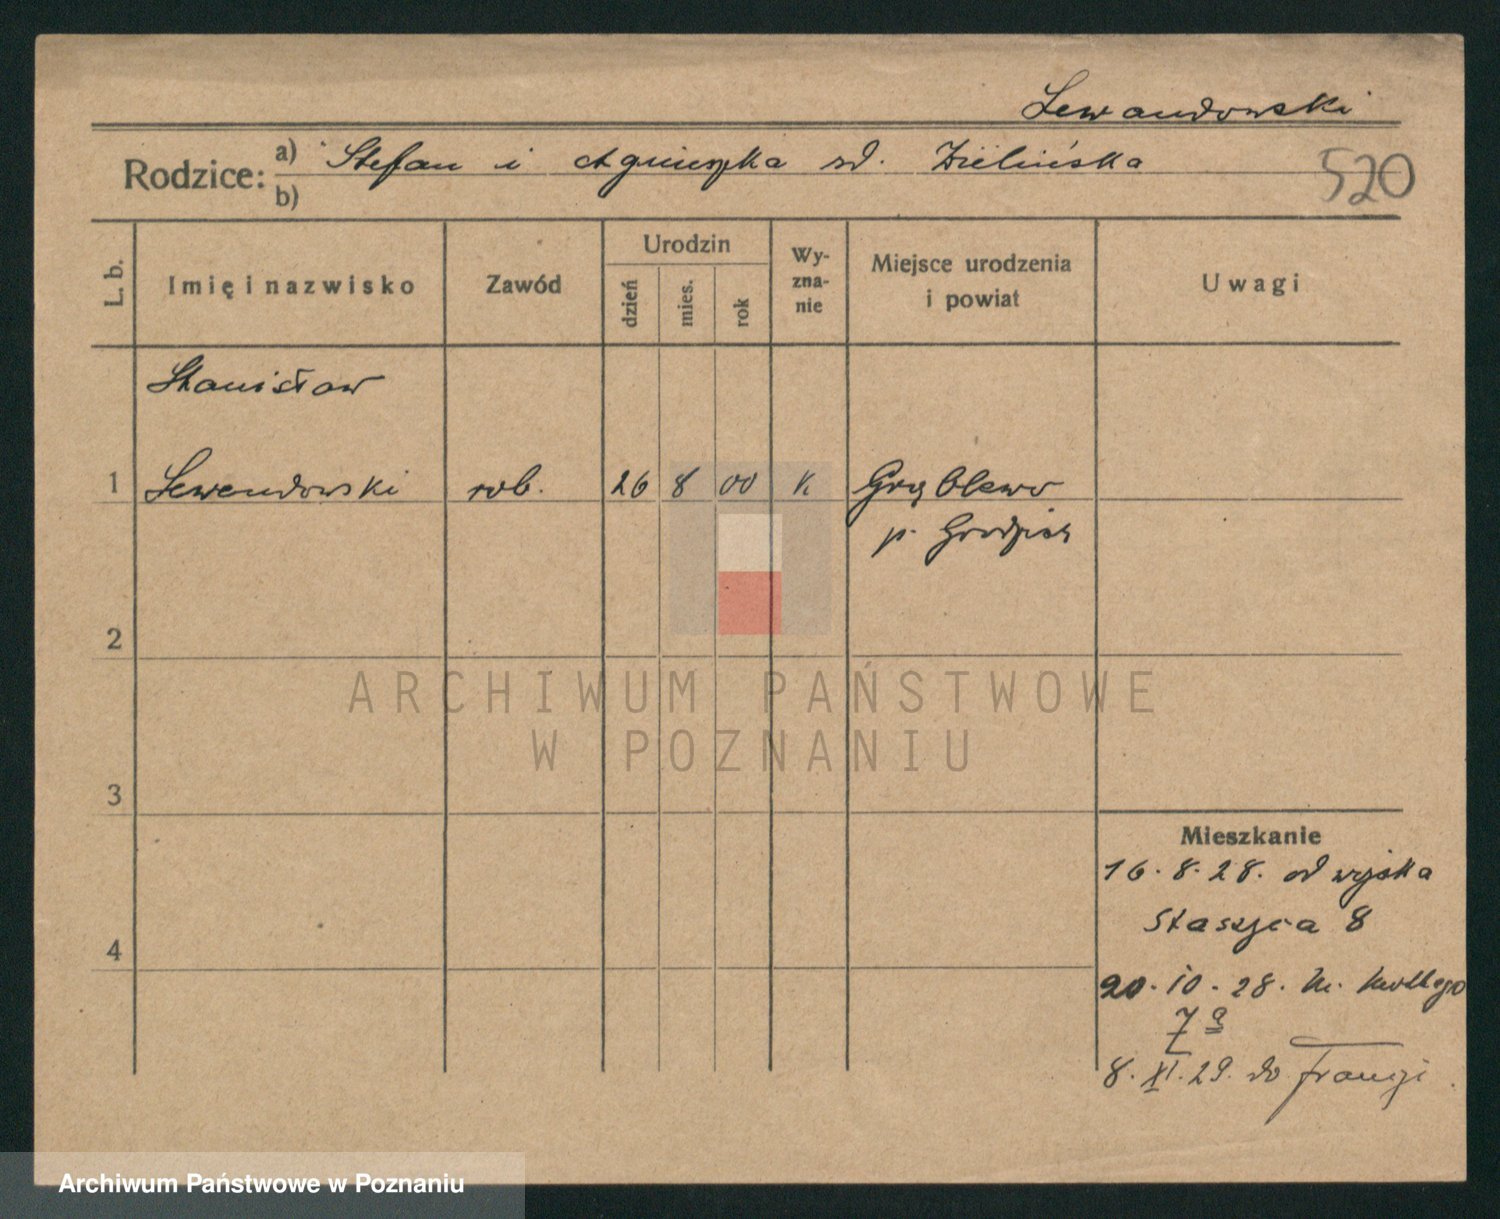 Lewandowski
Rodzice: a) Stefan i Agnieszka zd. Zielińska
b)
520
L. b.
Imię i nazwisko
Zawód
Urodzin
dzień
mies.
rok
Wy-
zna-
nie
Miejsce urodzenia
i powiat
Uwagi
Stanisław
1 Lewandowski rob. 26 8 00 K Grąblewo
p. Grodzisk
2
ARCHIWUM PAŃSTWOWE
W POZNANIU
3
Mieszkanie
16. 8. 28. od wojska
Staszica 8
4
20. 10. 28.
7a
8. XI. 29. do Francji
Archiwum Państwowe w Poznaniu